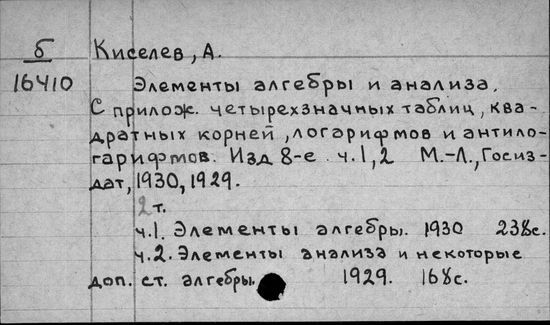 б Киселев, А.
16410
Элементы алгебры и анализа.
С прилож. четырехзначных таблиц, ква-
дратных корней, логарифмов и антило-
гарифмов. Изд 8-е ч.1,2 М.-Л., Госиз-
дат, 1930, 1929.
2 т.
ч.1. Элементы алгебры. 1930 238с.
ч.2. Элементы анализа и некоторые
доп. ст. алгебры. 1929. 168с.